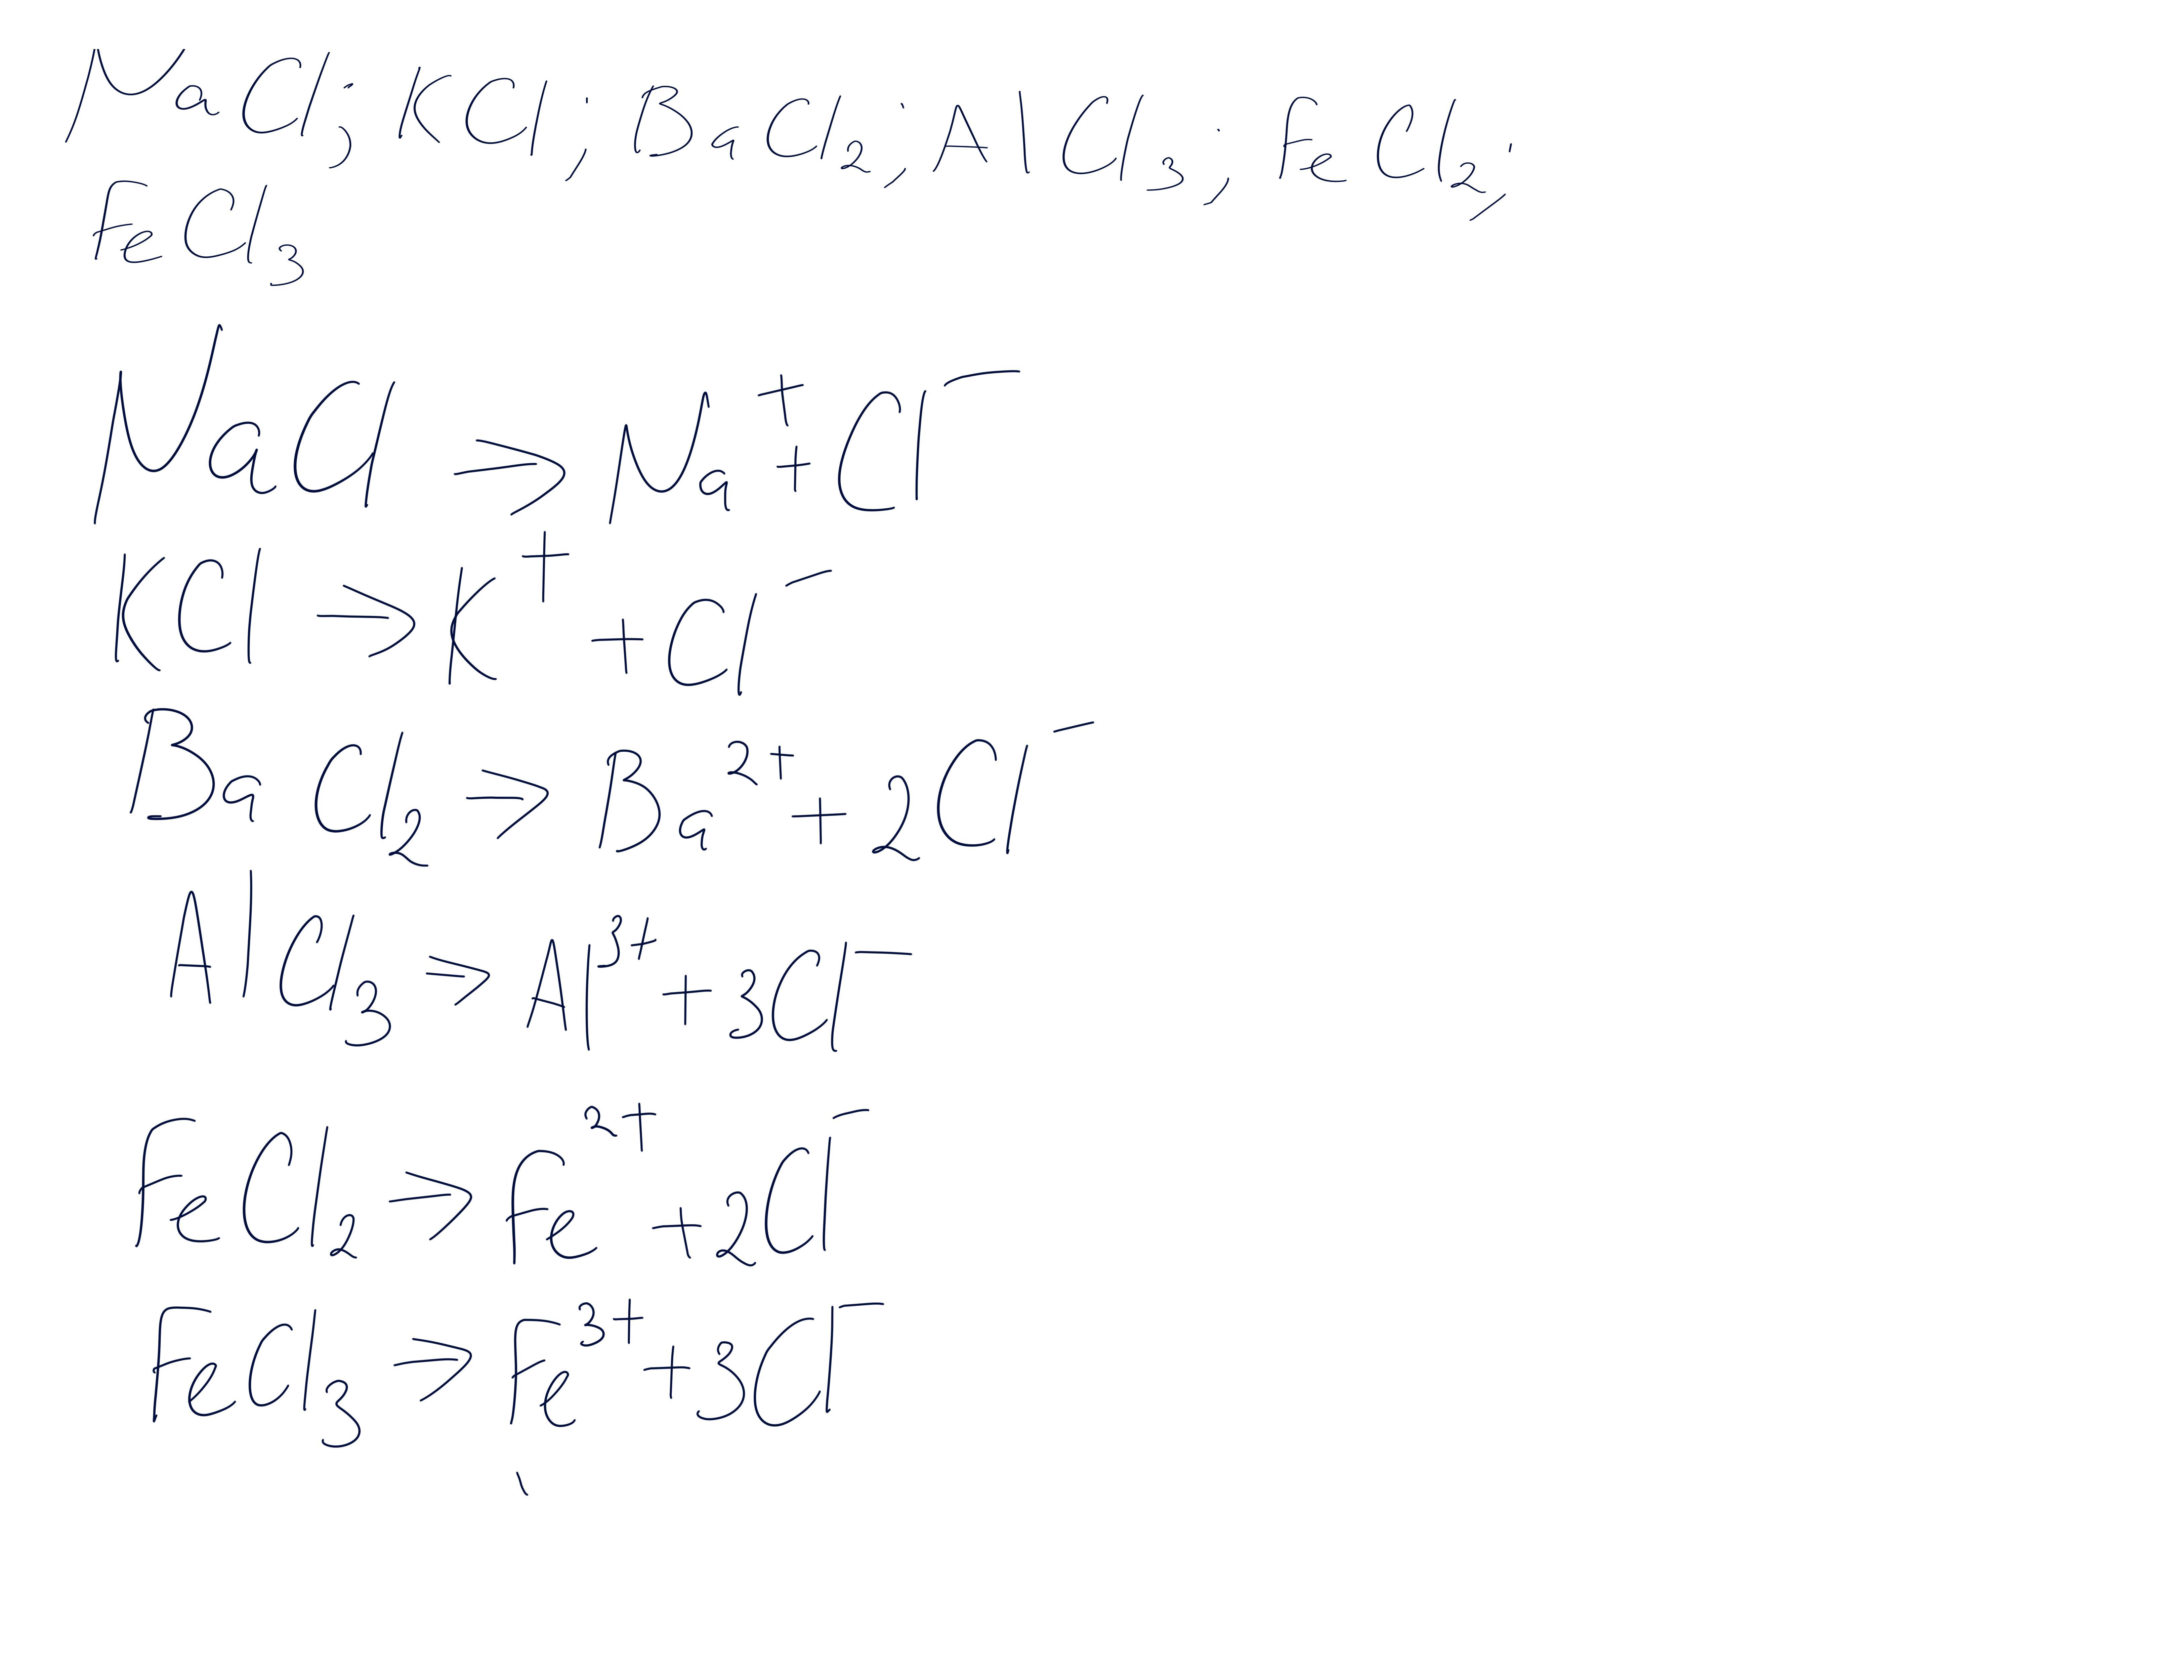 NaCl; KCl; BaCl₂; AlCl₃; FeCl₂;
FeCl₃
NaCl → Na⁺ + Cl⁻
KCl → K⁺ + Cl⁻
BaCl₂ → Ba²⁺ + 2Cl⁻
AlCl₃ → Al³⁺ + 3Cl⁻
FeCl₂ → Fe²⁺ + 2Cl⁻
FeCl₃ → Fe³⁺ + 3Cl⁻